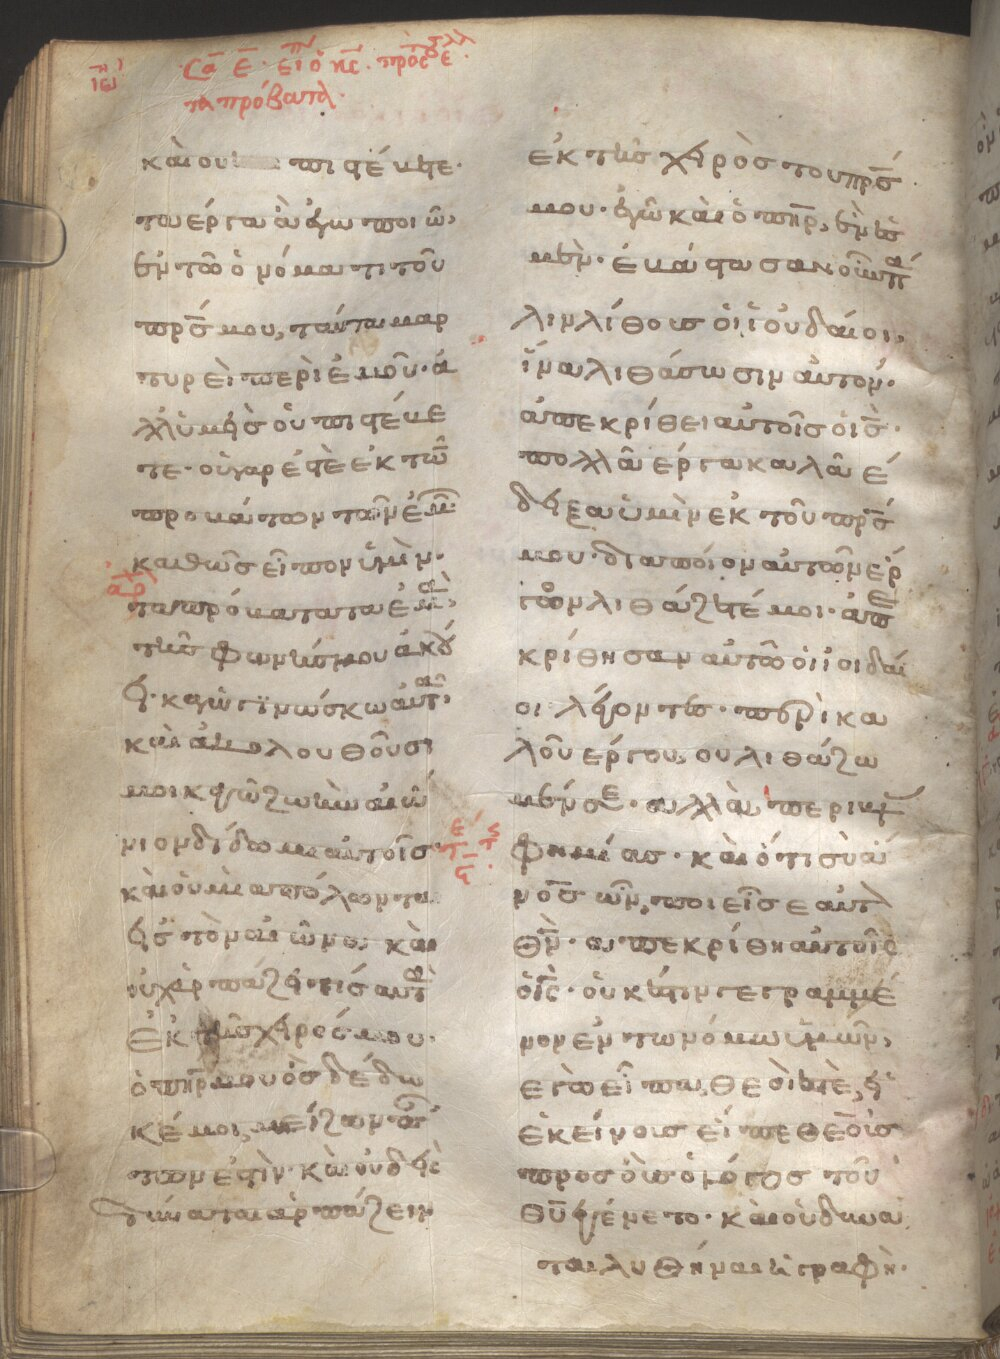 Σα ε ειπ ο κς προς
τα πρόβατα
και ου πιστέυετε·
τα έργα ὰ ἐγω ποιῶ,
ἐν τῶ ὀνόματι τοῦ
πρς μου, ταύτα μαρ
τυρεὶ περὶ ἐμοῦ· ἀ
λλ ὑμεὶς ὀυ πιστέυε
τε· ου γαρ ἐστὲ ἐκ τῶν
προβάτων τῶν ἐμῶν
καθῶς εῖπον ὑμὶν·
αρ
τα πρόβατα τα ἐμὰ
τῆς φωνῆς μου ἀκού
ει· καγὼ γϊνώσκω ἀυτὰ
καὶ ἀκολουθοῦσι
μοι κἀγὼ ζωὴν αἰώ
νιον δίδωμι αυτοῖς
καὶ ὀυ μὴ απόλωνται
εἰς τὸν αἰῶνα· καὶ
ουχ ὰρπάζει τίς αυτὰ
Ἐκ τῆς χειρός μου·
ὁ πηρ μου ὃς δέδω
κέ μοι, μείζων παν
των εστὶν· καὶ ουδεὶς
δύναται αρπάζειν
ἐκ τῆς χειρὸς του πρς
μου· ἐγὼ καὶ ὁ πηρ, ἕν ἐσ
μεν· ἐβάστασαν οὖν πά
λιν λίθους ὁι ἰουδαίοι,
ἵνα λιθάσωσιν ἀυτον·
ἀπεκρίθει αυτοῖς ὁ ις·
πολλὰ εργα καλὰ έ
δειξα ὑμὶν εκ τοῦ πρς
μου· δια ποίον αυτῶν ερ
γων λιθάζετέ μοι· ἀπε
κρίθησαν αυτῶ ὁι ϊοιδαί
οι λέγοντες· περὶ κα
λοῦ εργου, ου λιθάζω
μέν σε· αλλὰ περι βλασ
φημίας· καὶ ότι σὺ ἀν
νος ὢν, ποιεῖς εαυτὸν
θν· απεκρίθη αυτοῖς
ὁ ις· ὀυκ έστιν γεγραμμέ
νον ἐν τω νόμω ὑμῶν,
εγὼ εῖπα, θεόι ἐστὲ, εἰ
ἐκείνους εἶπε θεοὺς
προς ὁυς ὁ λόγος τοῦ
θυ ἐγένετο· καὶ οὐ δύνα
ται λυθῆναι ἡ γραφὴ·